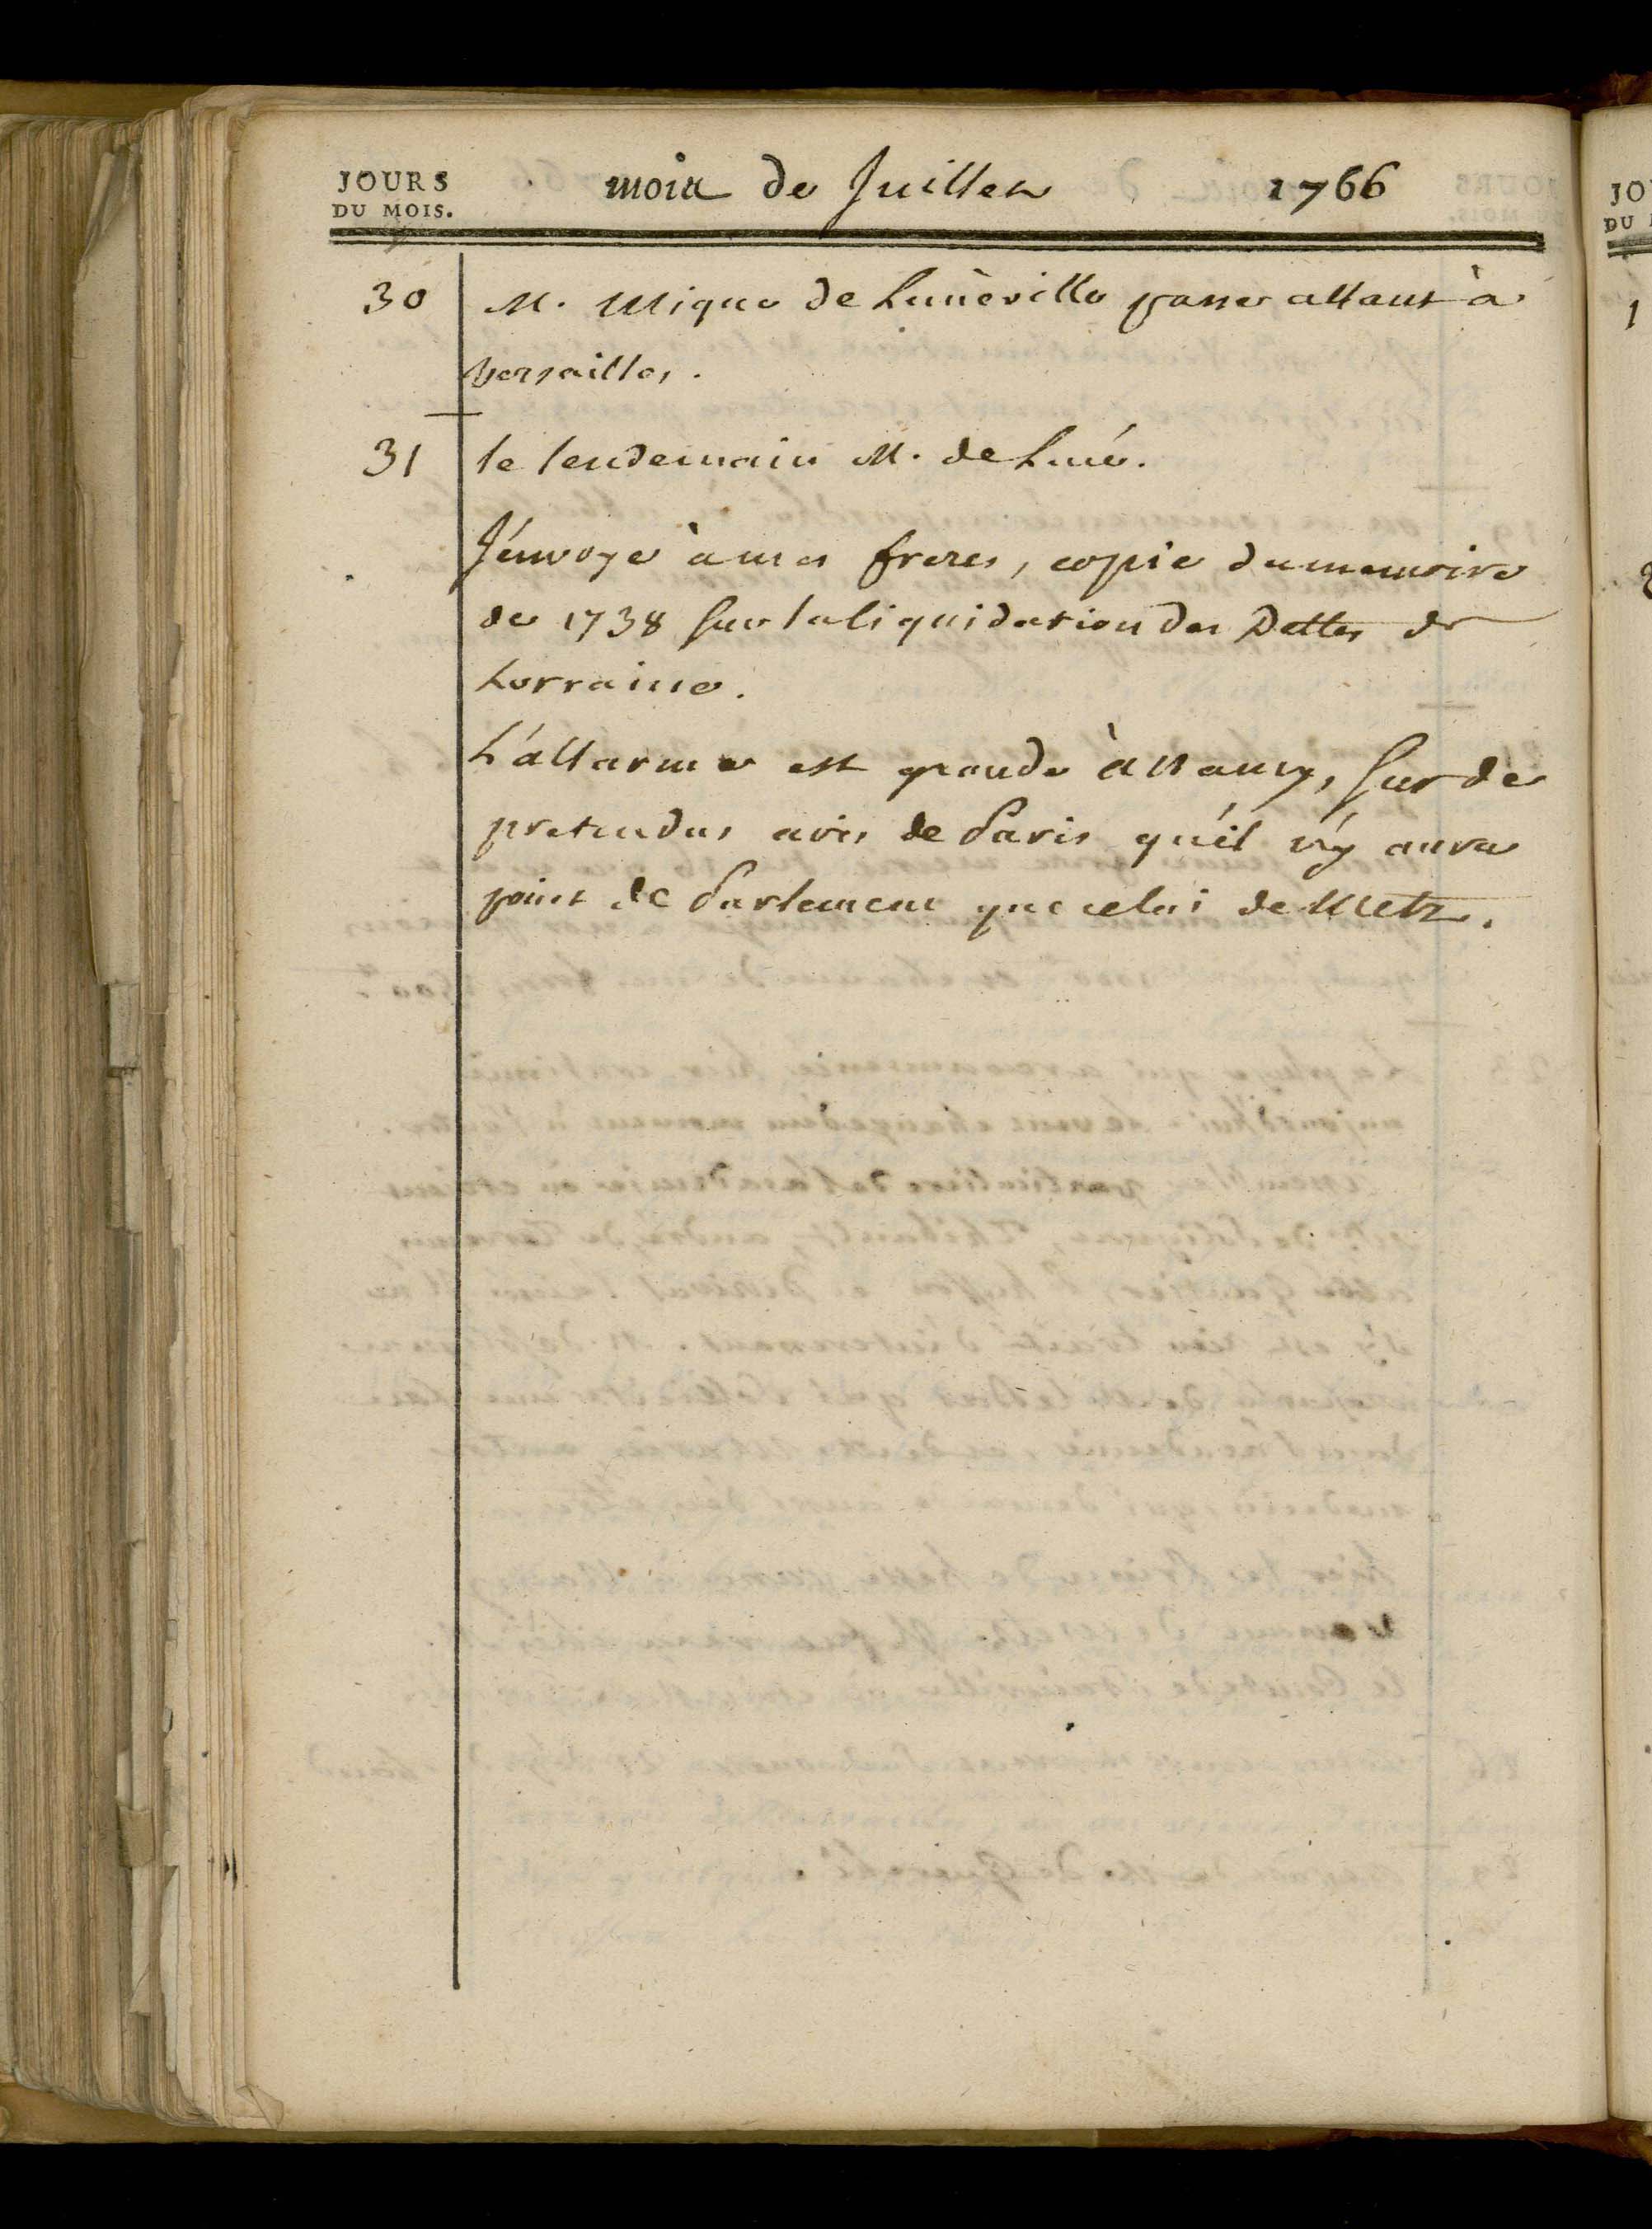 JOURS
DU MOIS.
mois de Juillet 1766
30 M. Mique de Lunèville passe allant à
Versailles.
31 le lendemain M. de Lucé.
J'envoye à mes freres, copie du memoire
de 1738 sur la liquidation des Dettes de
Lorraine.
L'allarme est grande à Nancy, sur de
pretendus avis de Paris qu'il n'y aura
point de Parlement que celui de Metz.